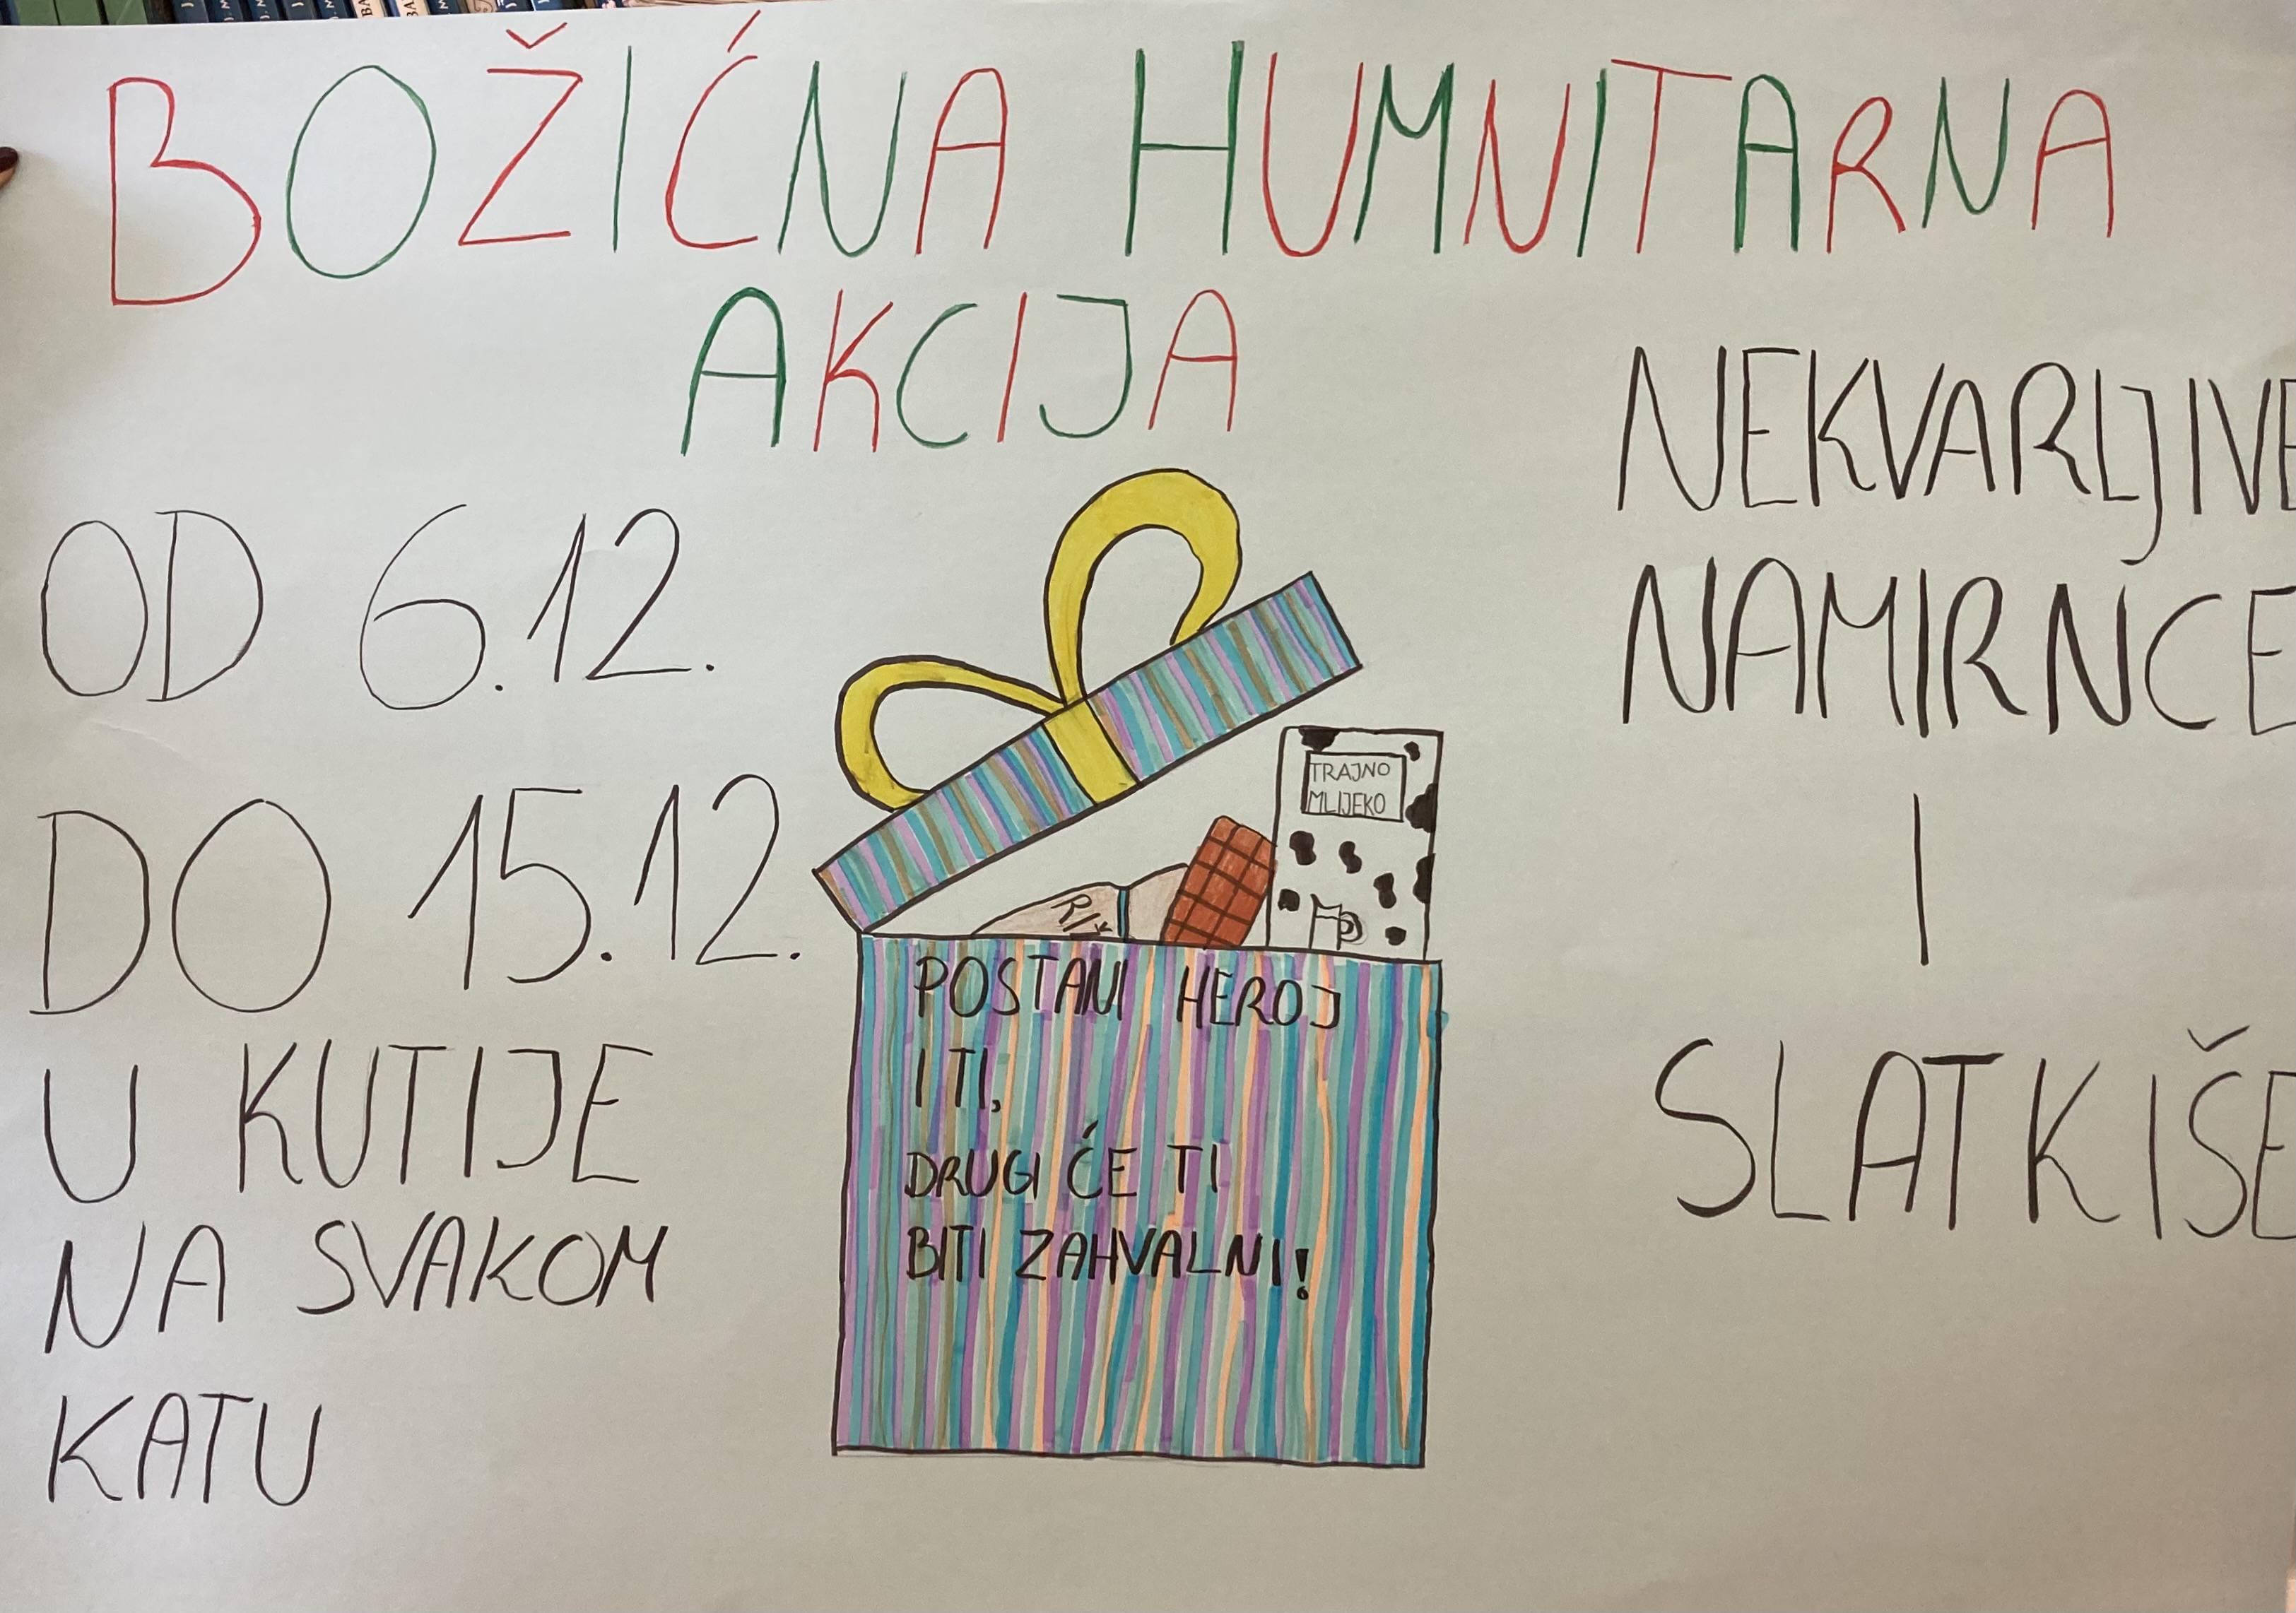 BOŽIĆNA HUMNITARNA
AKCIJA
OD 6.12.
DO 15.12.
U KUTIJE
NA SVAKOM
KATU
NEKVARLJIVE
NAMIRNCE
I
SLATKIŠE
TRAJNO
MLIJEKO
POSTANI HEROJ
I TI,
DRUGI ĆE TI
BITI ZAHVALNI!